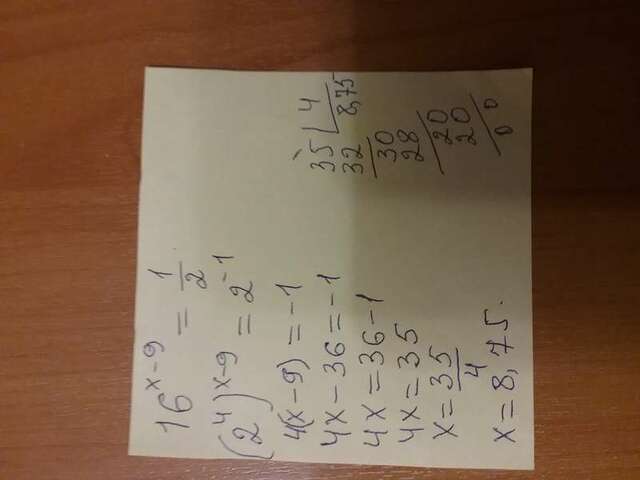 16^{x-9} = \frac{1}{2}
(2^4)^{x-9} = 2^{-1}
4(x-9) = -1
4x - 36 = -1
4x = 36 - 1
4x = 35
x = \frac{35}{4}
x = 8,75.
35 | 4
32 | 8,75
30
28
20
20
0 0